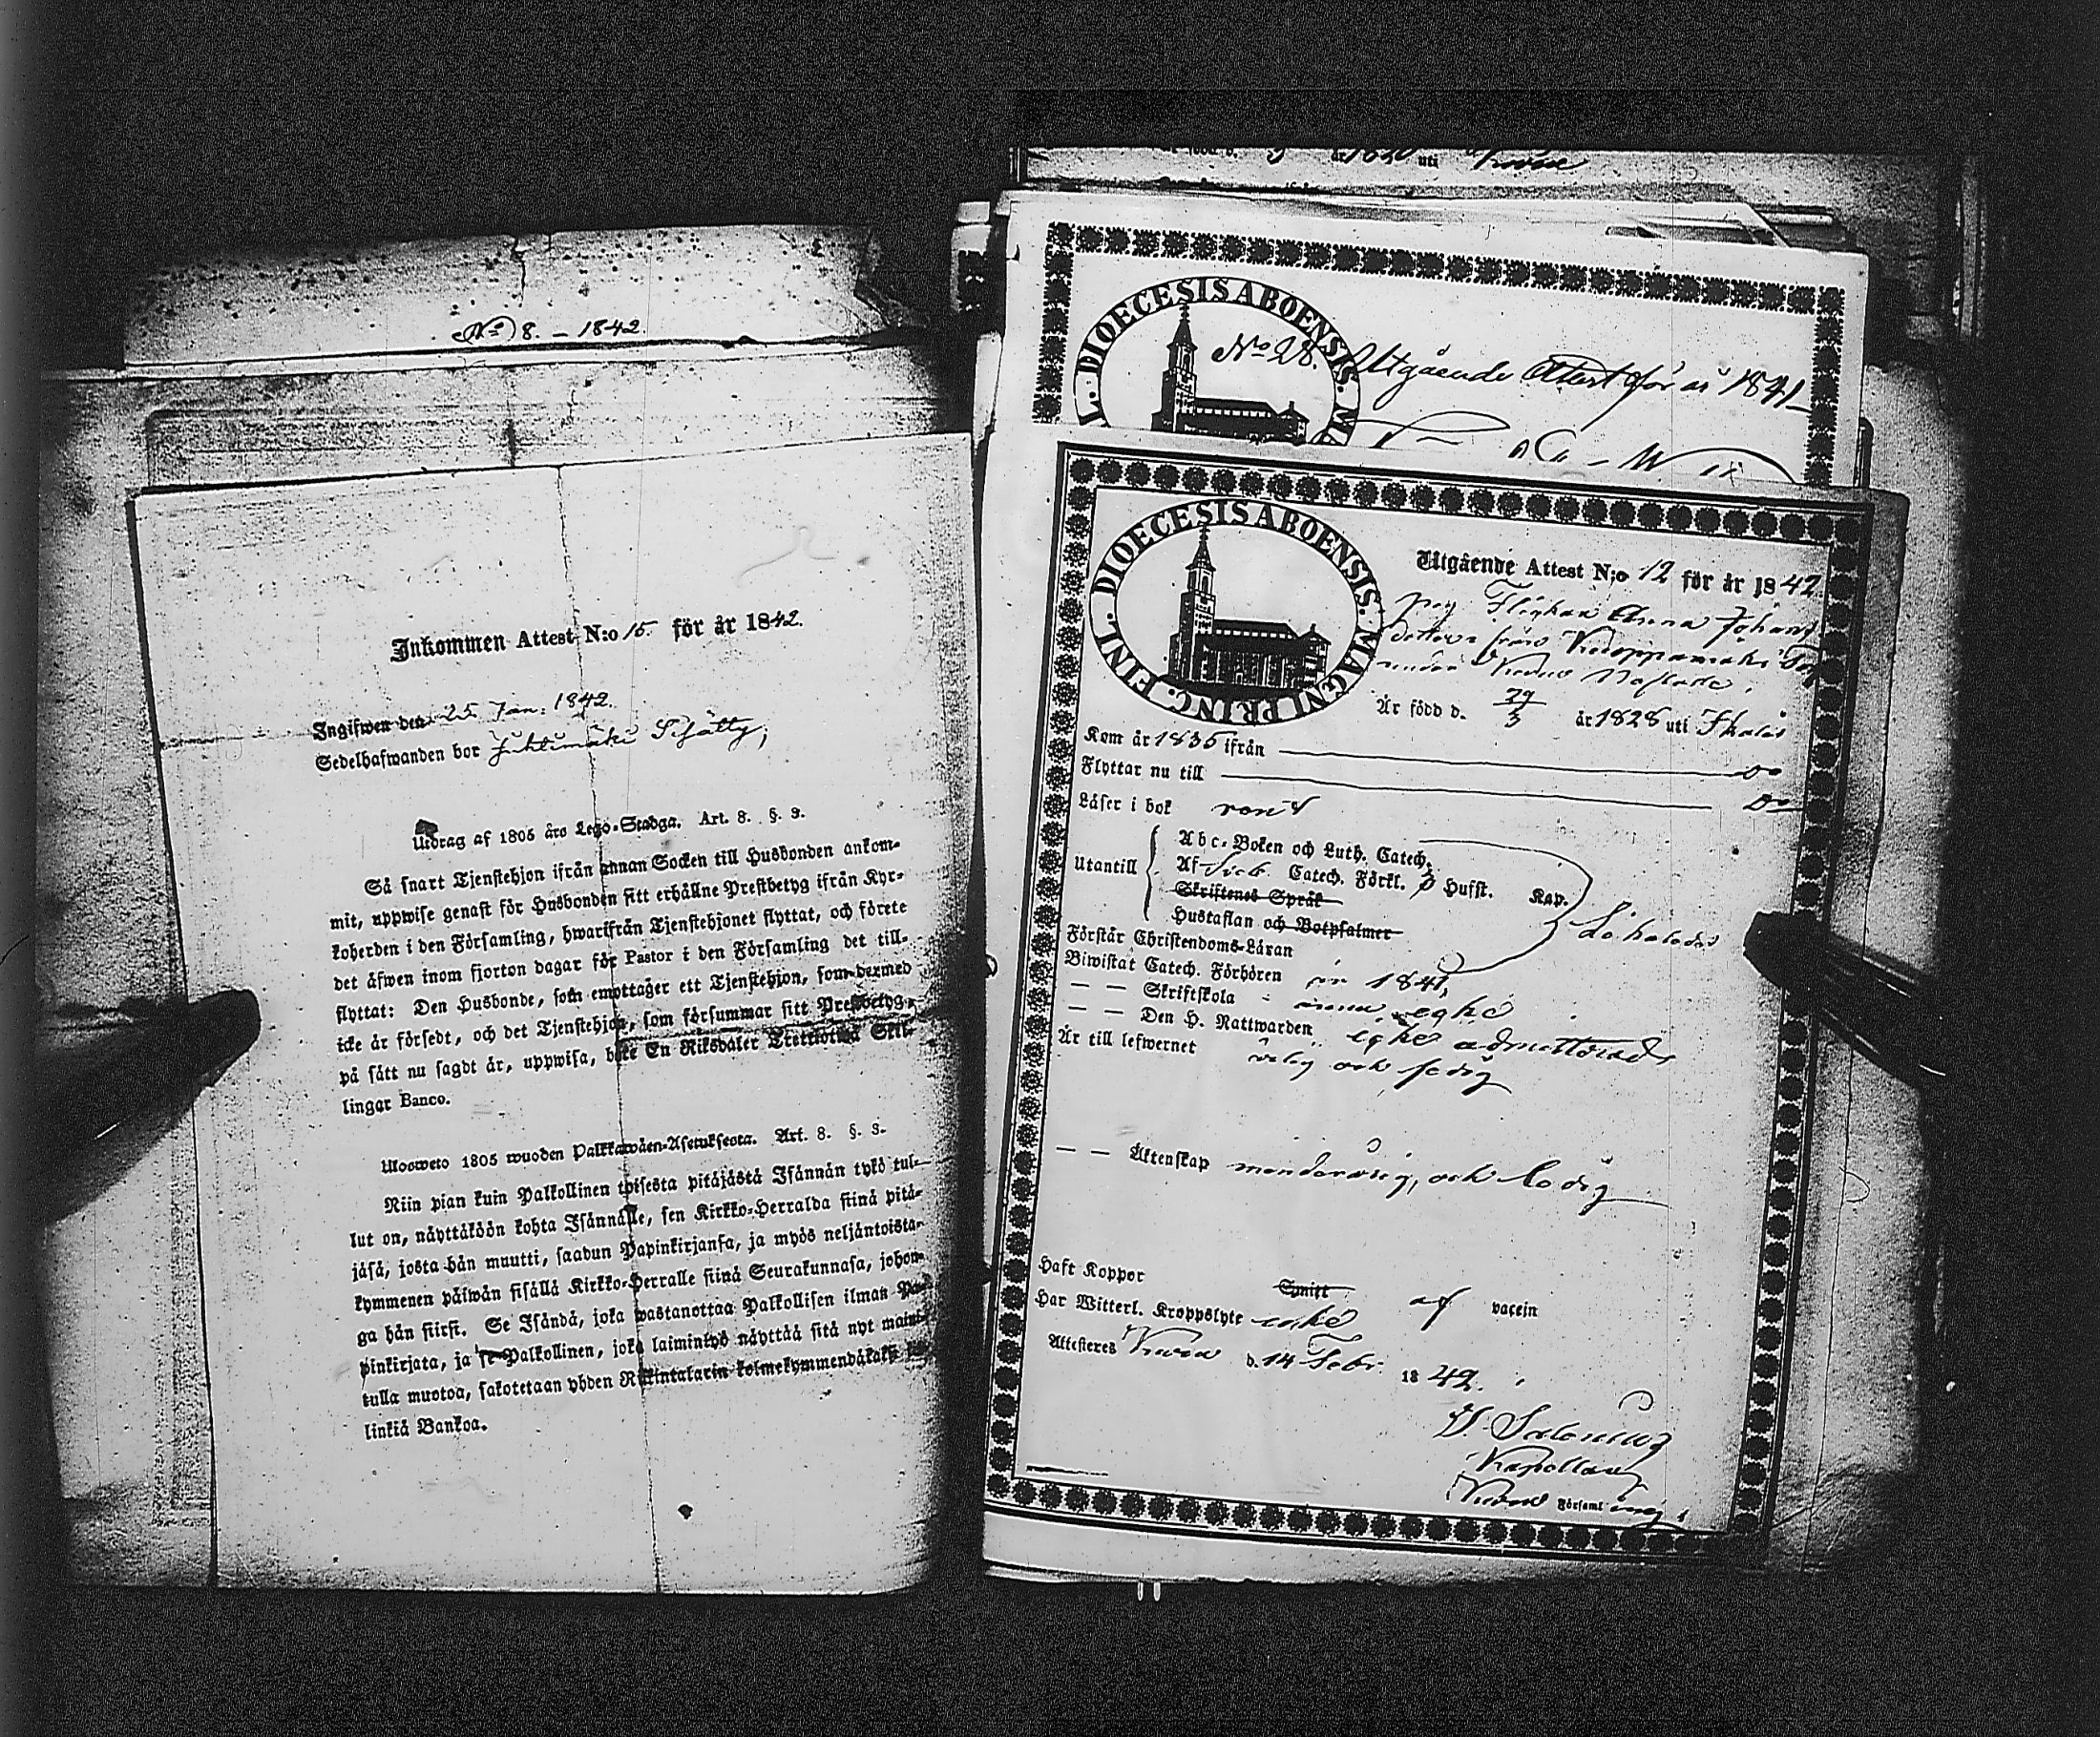 No 8. – 1842.
Inkommen Attest N:o 15. för år 1842.
Ingifwen den 25 Jan: 1842.
Sedelhafwanden bor
Utdrag af 1805 års Lego-Stadga. Art. 8. §. 9.
Så snart Tjenstehjon ifrån annan Socken till Husbonden ankom-
mit, uppwise genast för Husbonden sitt erhållne Prestbetyg ifrån Kyr-
koherden i den Församling, hwarifrån Tjenstehjonet flyttat, och förete
det äfwen inom fjorton dagar för Pastor i den Församling det till-
flyttat: Den Husbonde, som emottager ett Tjenstehjon, som dermed
icke är försedt, och det Tjenstehjon, som försummar sitt Prestbetyg,
på sätt nu sagdt är, uppwisa, böte En Riksdaler Trettiotwå Skil-
lingar Banco.
Ulosweto 1805 wuoden Palkkawäen-Asetuksesta. Art. 8. §. 9.
Niin pian kuin Palkollinen toisesta pitäjästä Isännän tykö tul-
lut on, näyttäköön kohta Isännälle, sen Kirkko-Herralda siinä pitä-
jäsä, josta hän muutti, saadun Papinkirjansa, ja myös neljäntoista-
kymmenen päiwän sisällä Kirkko-Herralle siinä Seurakunnasa, johon-
ga hän siirsi. Se Isändä, joka wastanottaa Palkollisen ilman Pa-
pinkirjata, ja se Palkollinen, joka laiminlyö näyttää sitä nyt mainit-
tulla muotoa, sakotetaan yhden Riikintalarin kolmekymmendäkaksi
linkiä Bankoa.
år 1820 uti
DIOECESIS ABOENSIS. MA
No 28. Utgående Attest för år 1841
DIOECESIS ABOENSIS. MAGNI PRINC. FINL.
Utgående Attest N:o 12 för år 1842.
Flickan Anna Johans
dotter från
under
Är född d. 29/3 år 1828 uti Ikalis
Kom år 1835 ifrån Do
Flyttar nu till Do
Läser i bok rent
Utantill
Abc-Boken och Luth. Catech.
Af Sveb. Catech. Förkl. Husst. Kap.
Skriftenes Språk
Hustaflan och Botpsalmer
Förstår Christendoms-Läran
Biwistat Catech. Förhören år 1841,
— — Skriftskola ännu ej
— — Den H. Nattwarden admitterad
Är till lefwernet ärlig och sedig
— — Äktenskap minderårig, och ledig
Haft Koppor Smitt af vaccin
Har Witterl. Kroppslyte
Attesteras d. 14 Febr. 1842.
Salonius
Kapellan
Församling